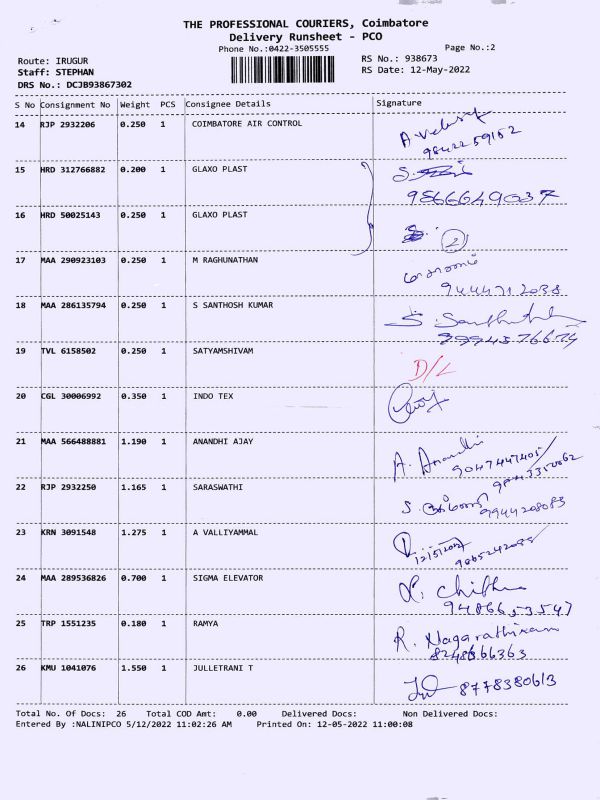 THE PROFESSIONAL COURIERS, Coimbatore
Delivery Runsheet - PCO
Phone No.:0422-3505555
Page No.:2
Route: IRUGUR
RS No.: 938673
Staff: STEPHAN
RS Date: 12-May-2022
DRS No.: DCJB93867302
S No Consignment No Weight PCS Consignee Details Signature
14 RJP 2932206 0.250 1 COIMBATORE AIR CONTROL
9842259152
15 HRD 312766882 0.200 1 GLAXO PLAST
9866649037
16 HRD 50025143 0.250 1 GLAXO PLAST
2
17 MAA 290923103 0.250 1 M RAGHUNATHAN
9444712038
18 MAA 286135794 0.250 1 S SANTHOSH KUMAR
19 TVL 6158502 0.250 1 SATYAMSHIVAM D/L
20 CGL 30006992 0.350 1 INDO TEX
21 MAA 566488881 1.190 1 ANANDHI AJAY A. Anandhi
9047447405/
22 RJP 2932250 1.165 1 SARASWATHI
9944208083
23 KRN 3091548 1.275 1 A VALLIYAMMAL
24 MAA 289536826 0.700 1 SIGMA ELEVATOR
9486653547
25 TRP 1551235 0.180 1 RAMYA R. Nagarathinam
8248666363
26 KMU 1041076 1.550 1 JULLETRANI T 8778380613
Total No. Of Docs: 26 Total COD Amt: 0.00 Delivered Docs: Non Delivered Docs:
Entered By :NALINIPCO 5/12/2022 11:02:26 AM Printed On: 12-05-2022 11:00:08